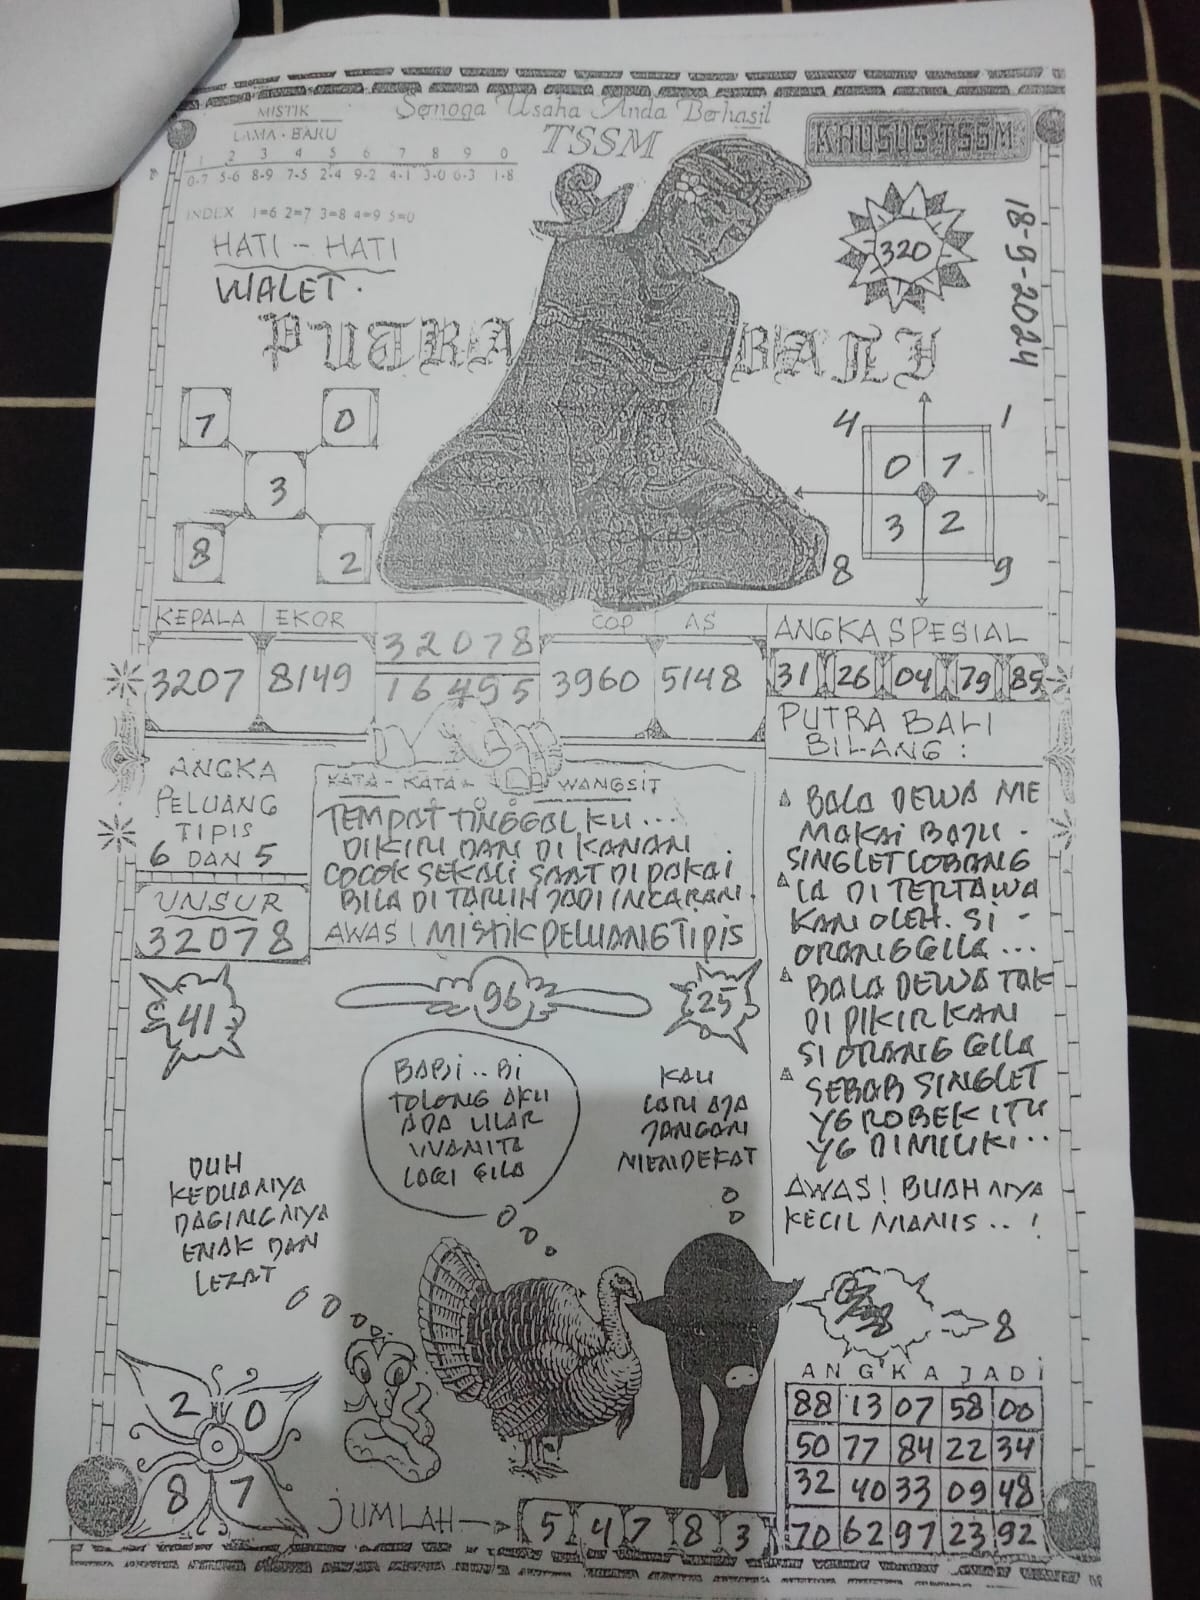 Semoga Usaha Anda Berhasil
TSSM
KHUSUS TSSM
MISTIK
LAMA - BARU
1 2 3 4 5 6 7 8 9 0
0-7 5-6 8-9 7-5 2-4 9-2 4-1 3-0 6-3 1-8
INDEX 1=6 2=7 3=8 4=9 5=0
HATI - HATI
WALET.
320
18-9-2024
PUTRA BALI
7 0
3
8 2
4 1
0 7
3 2
8 9
KEPALA EKOR
3207 8149
32078
16495
COP AS
3960 5148
ANGKA SPESIAL
31 26 04 79 85
ANGKA
PELUANG
TIPIS
6 DAN 5
UNSUR
32078
KATA - KATA - WANGSIT
TEMPAT TINGGAL KU...
DIKIRI DAN DI KANAN
COCOK SEKALI SAAT DI PAKAI
BILA DI TARUH JADI INCARAN.
AWAS! MISTIK PELUANG TIPIS
PUTRA BALI
BILANG:
BALA DEWA ME
MAKAI BAJU -
SINGLET LOBANG
IA DI TERTAWA
KAN OLEH. SI -
ORANG GILA...
BALA DEWA TAK
DI PIKIRKAN
SI ORANG GILA
SEBAB SINGLET
YG ROBEK ITU
YG DIMILIKI..
AWAS! BUAH NYA
KECIL MANIS..!
41
96
25
BABI.. BI
TOLONG AKU
ADA ULAR
WANITA
LAGI GILA
KAU
LARI AJA
JANGAN
MENDEKAT
DUH
KEDUANYA
DAGINGNYA
ENAK DAN
LEZAT
8
2 0
8 7
JUMLAH
5 4 7 8 3
ANGKA JADI
88 13 07 58 00
50 77 84 22 34
32 40 33 09 48
70 62 97 23 92